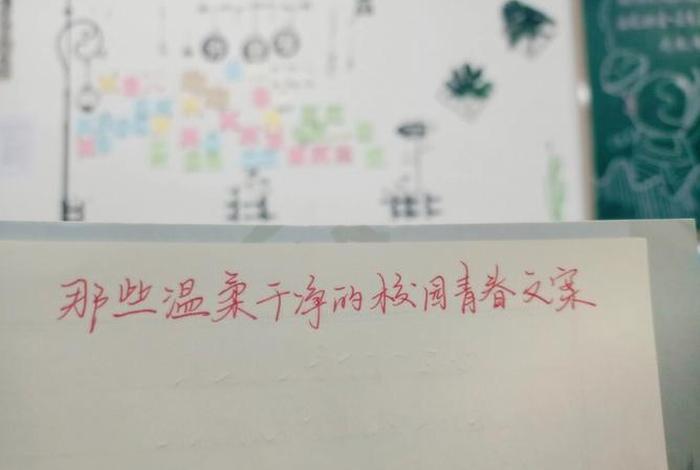 那些温柔干净的校园青春文案